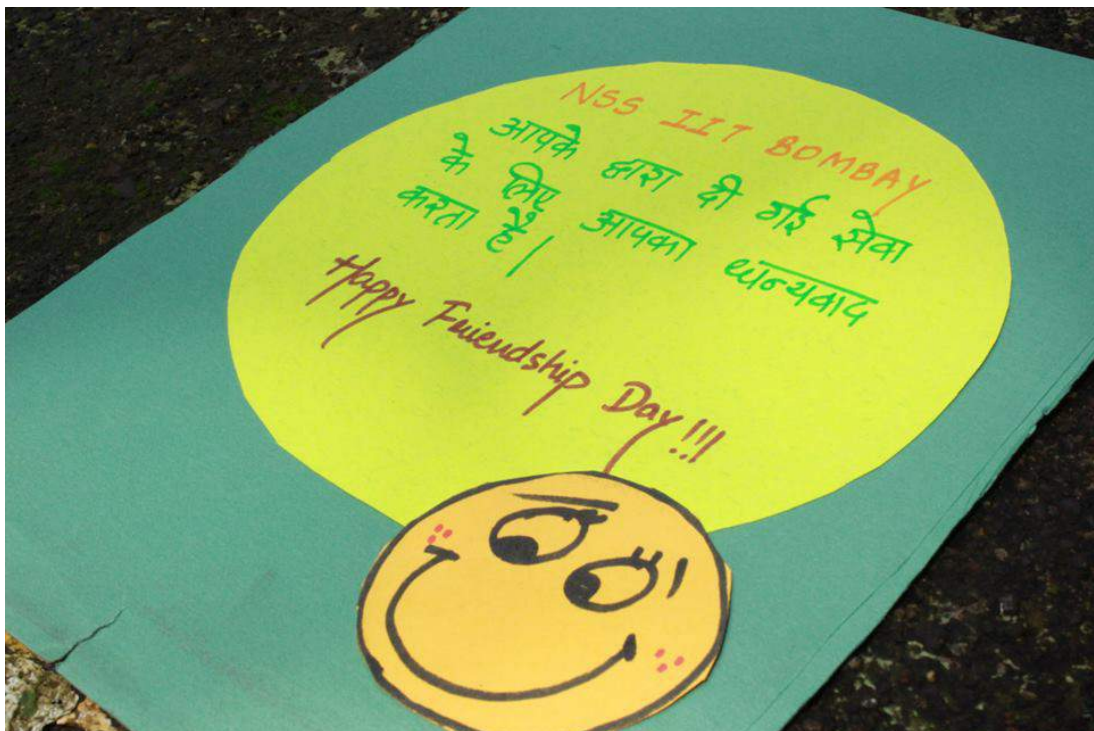 NSS IIT BOMBAY
आपके द्वारा दी गई सेवा
के लिए आपका धन्यवाद
करता है।
Happy Friendship Day!!!